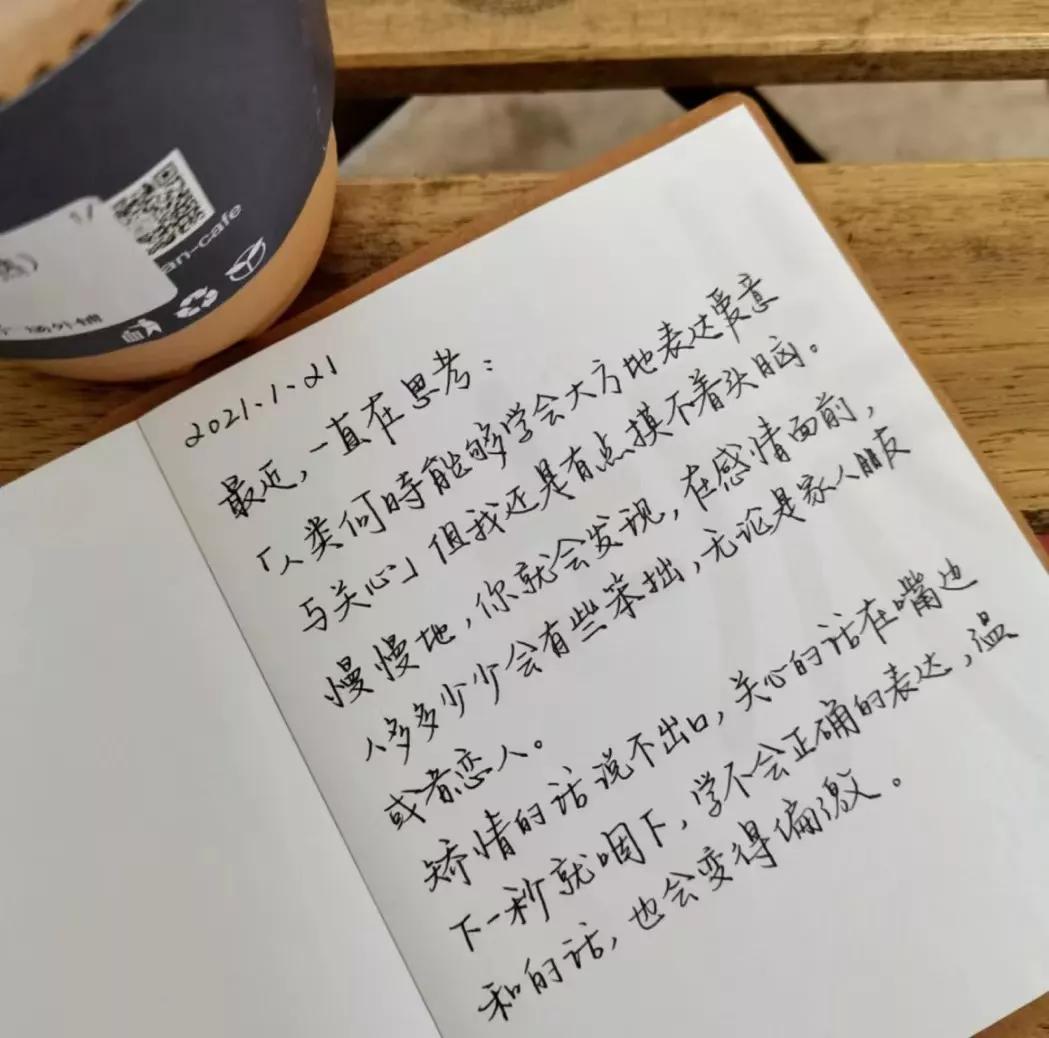 an-cafe
2021.1.21
最近,一直在思考:
「人类何時能够学会大方地表达爱意
与关心」但我还是有点摸不着头脑。
慢慢地,你就会发现,在感情面前,
人多多少少会有些笨拙,无论是家人朋友
或者恋人。
矫情的话说不出口,关心的话在嘴边
下一秒就咽下,学不会正确的表达,温
和的话,也会变得偏激。